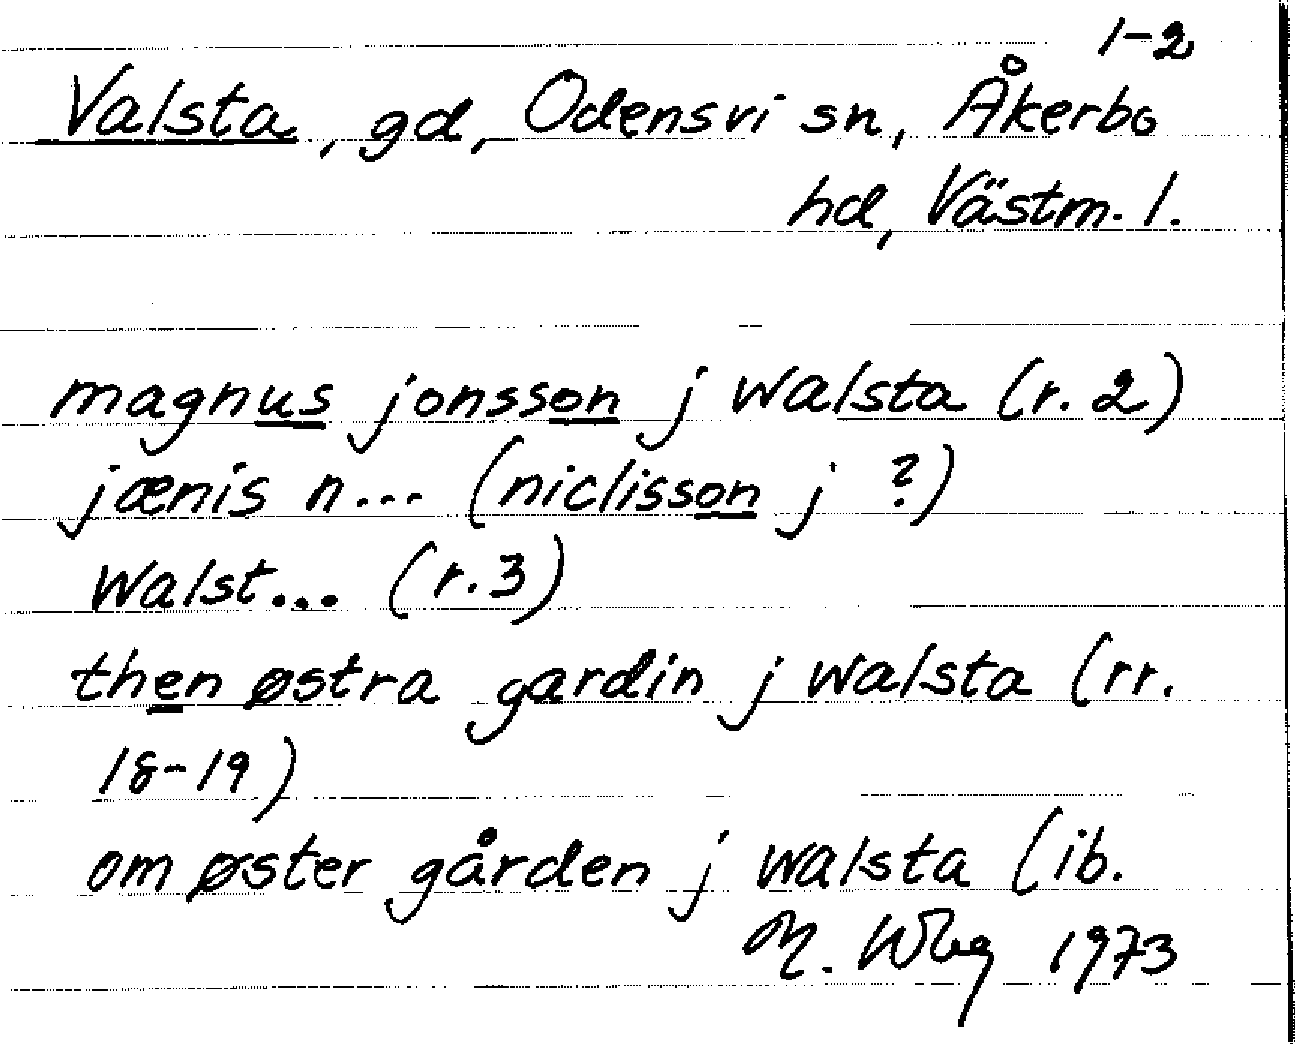 1-2
Valsta, gd, Odensvi sn, Åkerbo
hd, Västm. l.
magnus jonsson j walsta (r. 2)
jænis n... (niclisson j ?)
walst... (r. 3)
then østra gardin j walsta (rr.
18-19)
om øster gården j walsta (ib.
M. Wbg 1973